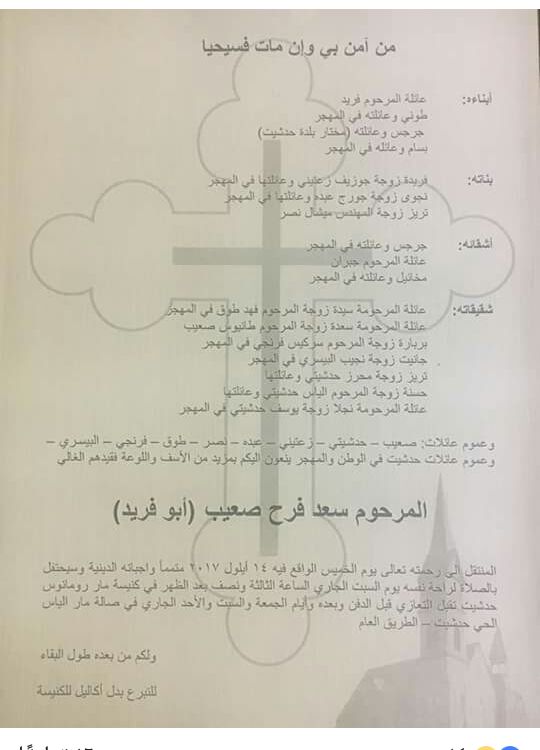 من آمن بي وإن مات فسيحيا
أبناءه: عائلة المرحوم فريد
طوني وعائلته في المهجر
جرجس وعائلته (مختار بلدة حدشيت)
بسام وعائله في المهجر
بناته: فريدة زوجة جوزيف زعتيني وعائلتها في المهجر
نجوى زوجة جورج عبده وعائلتها في المهجر
تريز زوجة المهندس ميشال نصر
أشقائه: جرجس وعائلته في المهجر
عائلة المرحوم جبران
مخائيل وعائلته في المهجر
شقيقاته: عائلة المرحومة سيدة زوجة المرحوم فهد طوق في المهجر
عائلة المرحومة سعدة زوجة المرحوم طانيوس صعيب
بربارة زوجة المرحوم سركيس فرنجي في المهجر
جانيت زوجة نجيب البيسري في المهجر
تريز زوجة محرز حدشيتي وعائلتها
حسنة زوجة المرحوم الياس حدشيتي وعائلتها
عائلة المرحومة نجلا زوجة يوسف حدشيتي في المهجر
وعموم عائلات: صعيب – حدشيتي – زعتيني – عبده – نصر – طوق – فرنجي – البيسري –
وعموم عائلات حدشيت في الوطن والمهجر ينعون اليكم بمزيد من الأسف واللوعة فقيدهم الغالي
المرحوم سعد فرح صعيب (أبو فريد)
المنتقل الى رحمته تعالى يوم الخميس الواقع فيه ١٤ أيلول ٢٠١٧ متمماً واجباته الدينية وسيحتفل
بالصلاة لراحة نفسه يوم السبت الجاري الساعة الثالثة ونصف بعد الظهر في كنيسة مار رومانوس
حدشيت تقبل التعازي قبل الدفن وبعده وأيام الجمعة والسبت والأحد الجاري في صالة مار الياس
الحي حدشيت – الطريق العام
ولكم من بعده طول البقاء
للتبرع بدل أكاليل للكنيسة